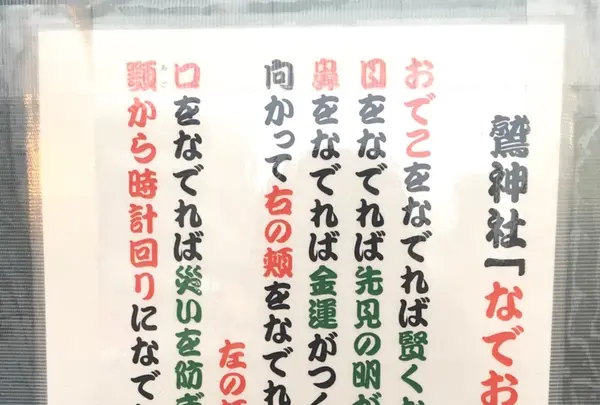 鷲神社「なでお
おでこをなでれば賢くな
目をなでれば先見の明が
鼻をなでれば金運がつく
向かって右の頬をなでれ
左の頬
口をなでれば災いを防ぎ
顎から時計回りになで
あご